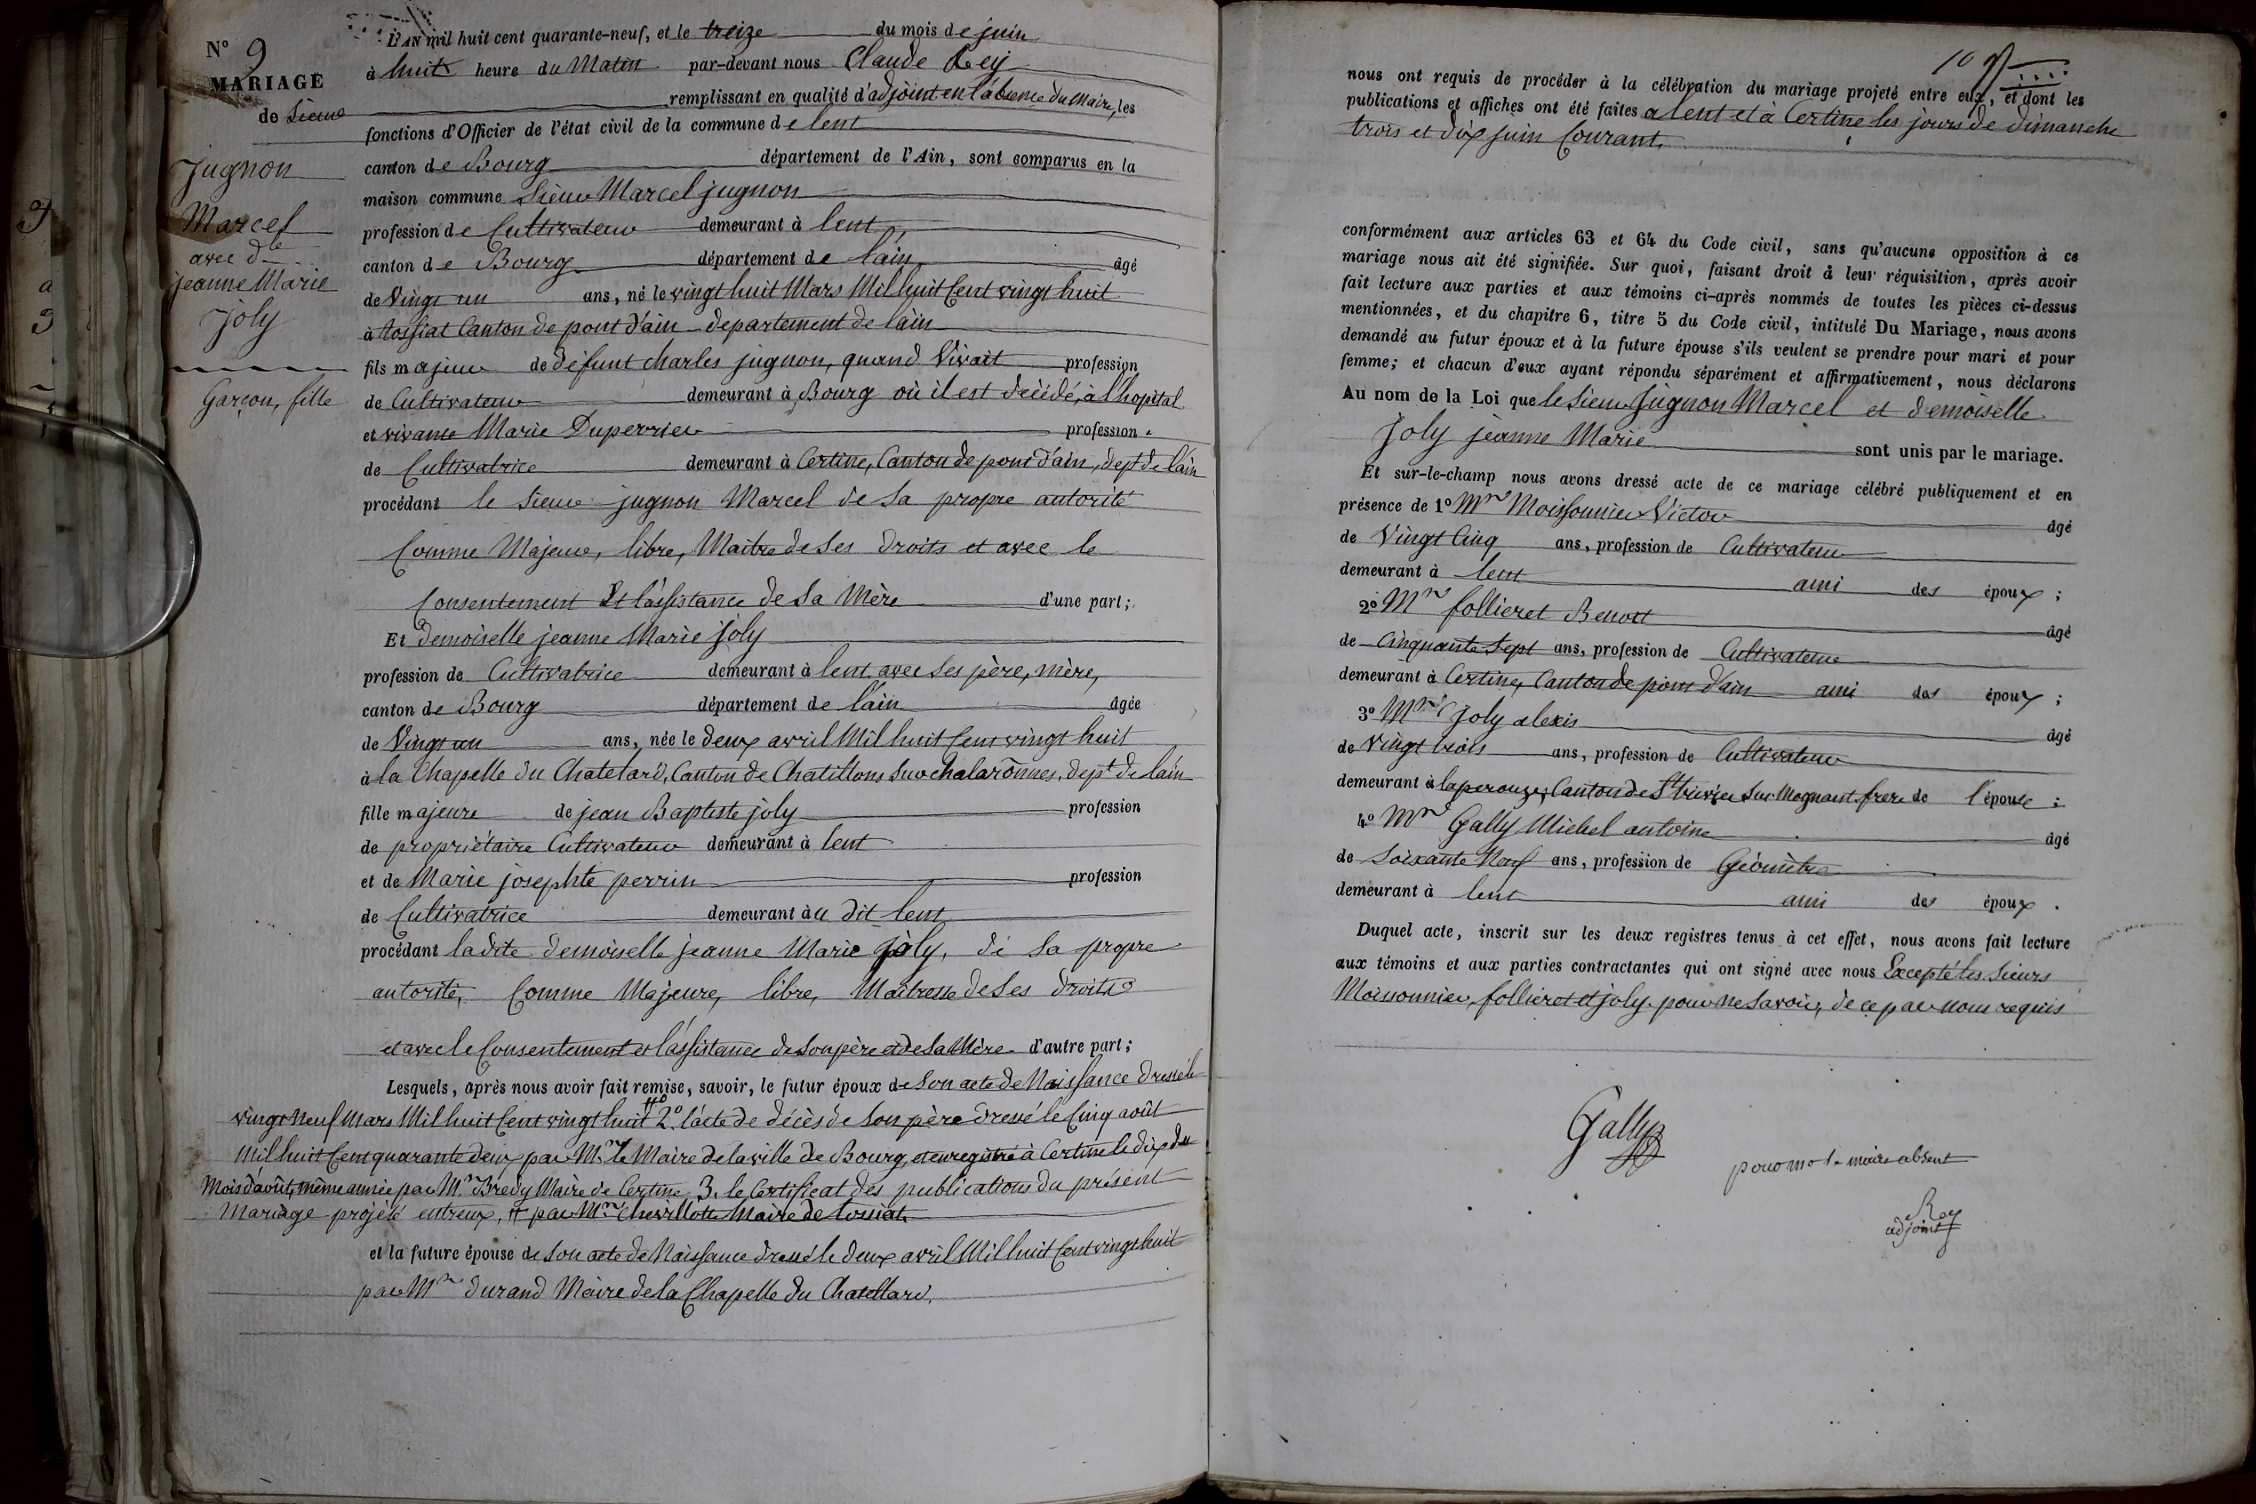 N° 9
MARIAGE
de Sieur
Jugnon
Marcel
avec dlle
jeanne Marie
Joly
Garçon, fille
L'AN mil huit cent quarante-neuf, et le treize du mois de juin
à huit heure du Matin par-devant nous Claude Rey
remplissant en qualité d'adjoint en l'absence du Maire, les
fonctions d'Officier de l'état civil de la commune de lent
canton de Bourg département de l'Ain, sont comparus en la
maison commune Sieur Marcel jugnon
profession de Cultivateur demeurant à lent
canton de Bourg département de l'ain âgé
de Vingt un ans, né le vingt huit Mars Mil huit Cent vingt huit
à tossiat Canton de pont d'ain departement de l'ain
fils majeur de défunt charles jugnon, quand Vivait profession
de Cultivateur demeurant à Bourg où il est décédé, à l'hopital
et vivante Marie Duperrier profession
de Cultivatrice demeurant à Certine, Canton de pont d'ain, dept de l'ain
procédant le Sieur jugnon Marcel de sa propre autorité
Comme Majeur, libre, Maitre de ses droits et avec le
Consentement Et l'assistance de sa Mère d'une part;
Et demoiselle jeanne Marie Joly
profession de Cultivatrice demeurant à lent avec ses père, mère,
canton de Bourg département de l'ain âgée
de Vingt un ans, née le deux avril Mil huit Cent vingt huit
à la Chapelle du Chatelard, Canton de Chatillons sur chalaronnes, dept de l'ain
fille majeure de jean Baptiste joly profession
de propriétaire Cultivateur demeurant à lent
et de Marie josephte perrin profession
de Cultivatrice demeurant àu dit lent
procédant la dite demoiselle jeanne Marie joly, de sa propre
autorité, Comme Majeure, libre, Maitresse de ses droits
et avec le Consentement et l'assistance de son père et de sa Mère d'autre part;
Lesquels, après nous avoir fait remise, savoir, le futur époux de son acte de Naissance dressé le
vingt Neuf Mars Mil huit Cent vingt huit # 2° l'acte de décès de son père dressé le Cinq août
Mil huit Cent quarante deux par Mr le Maire de la ville de Bourg, et enregistré à Certine le dix du
Mois d'août, même année par Mr Bredy Maire de Certine, 3. le Certificat des publications du présent
Mariage projeté entreux, # par Mr Chevillotte Maire de tossiat.
et la future épouse de son acte de Naissance dressé le deux avril Mil huit Cent vingt huit
par Mr durand Maire de la Chapelle du Chatellard,
10
nous ont requis de procéder à la célébration du mariage projeté entre eux, et dont les
publications et affiches ont été faites a lent et à Certine les jours de dimanche
trois et dix juin Courant.
conformément aux articles 63 et 64 du Code civil, sans qu'aucune opposition à ce
mariage nous ait été signifiée. Sur quoi, faisant droit à leur réquisition, après avoir
fait lecture aux parties et aux témoins ci-après nommés de toutes les pièces ci-dessus
mentionnées, et du chapitre 6, titre 5 du Code civil, intitulé Du Mariage, nous avons
demandé au futur époux et à la future épouse s'ils veulent se prendre pour mari et pour
femme; et chacun d'eux ayant répondu séparément et affirmativement, nous déclarons
Au nom de la Loi que le Sieur Jugnon Marcel et demoiselle
Joly jeanne Marie sont unis par le mariage.
Et sur-le-champ nous avons dressé acte de ce mariage célébré publiquement et en
présence de 1° Mr Moissonnier Victor âgé
de Vingt Cinq ans, profession de Cultivateur
demeurant à lent ami des époux;
2° Mr follieret Benoit âgé
de Cinquante Sept ans, profession de Cultivateur
demeurant à Certine, Canton de pont d'ain ami des époux;
3° Mr Joly alexis âgé
de Vingt trois ans, profession de Cultivateur
demeurant à laperouze, Canton de St trivier sur Mognant frere de l'épouse;
4° Mr Gally Michel antoine âgé
de Soixante Neuf ans, profession de Géomètre
demeurant à lent ami des époux.
Duquel acte, inscrit sur les deux registres tenus à cet effet, nous avons fait lecture
aux témoins et aux parties contractantes qui ont signé avec nous Excepté les Sieurs
Moissonnier, follieret et joly pour ne savoir, de ce par nous requis
Gally
pour mr le maire absent
Rey
adjoint